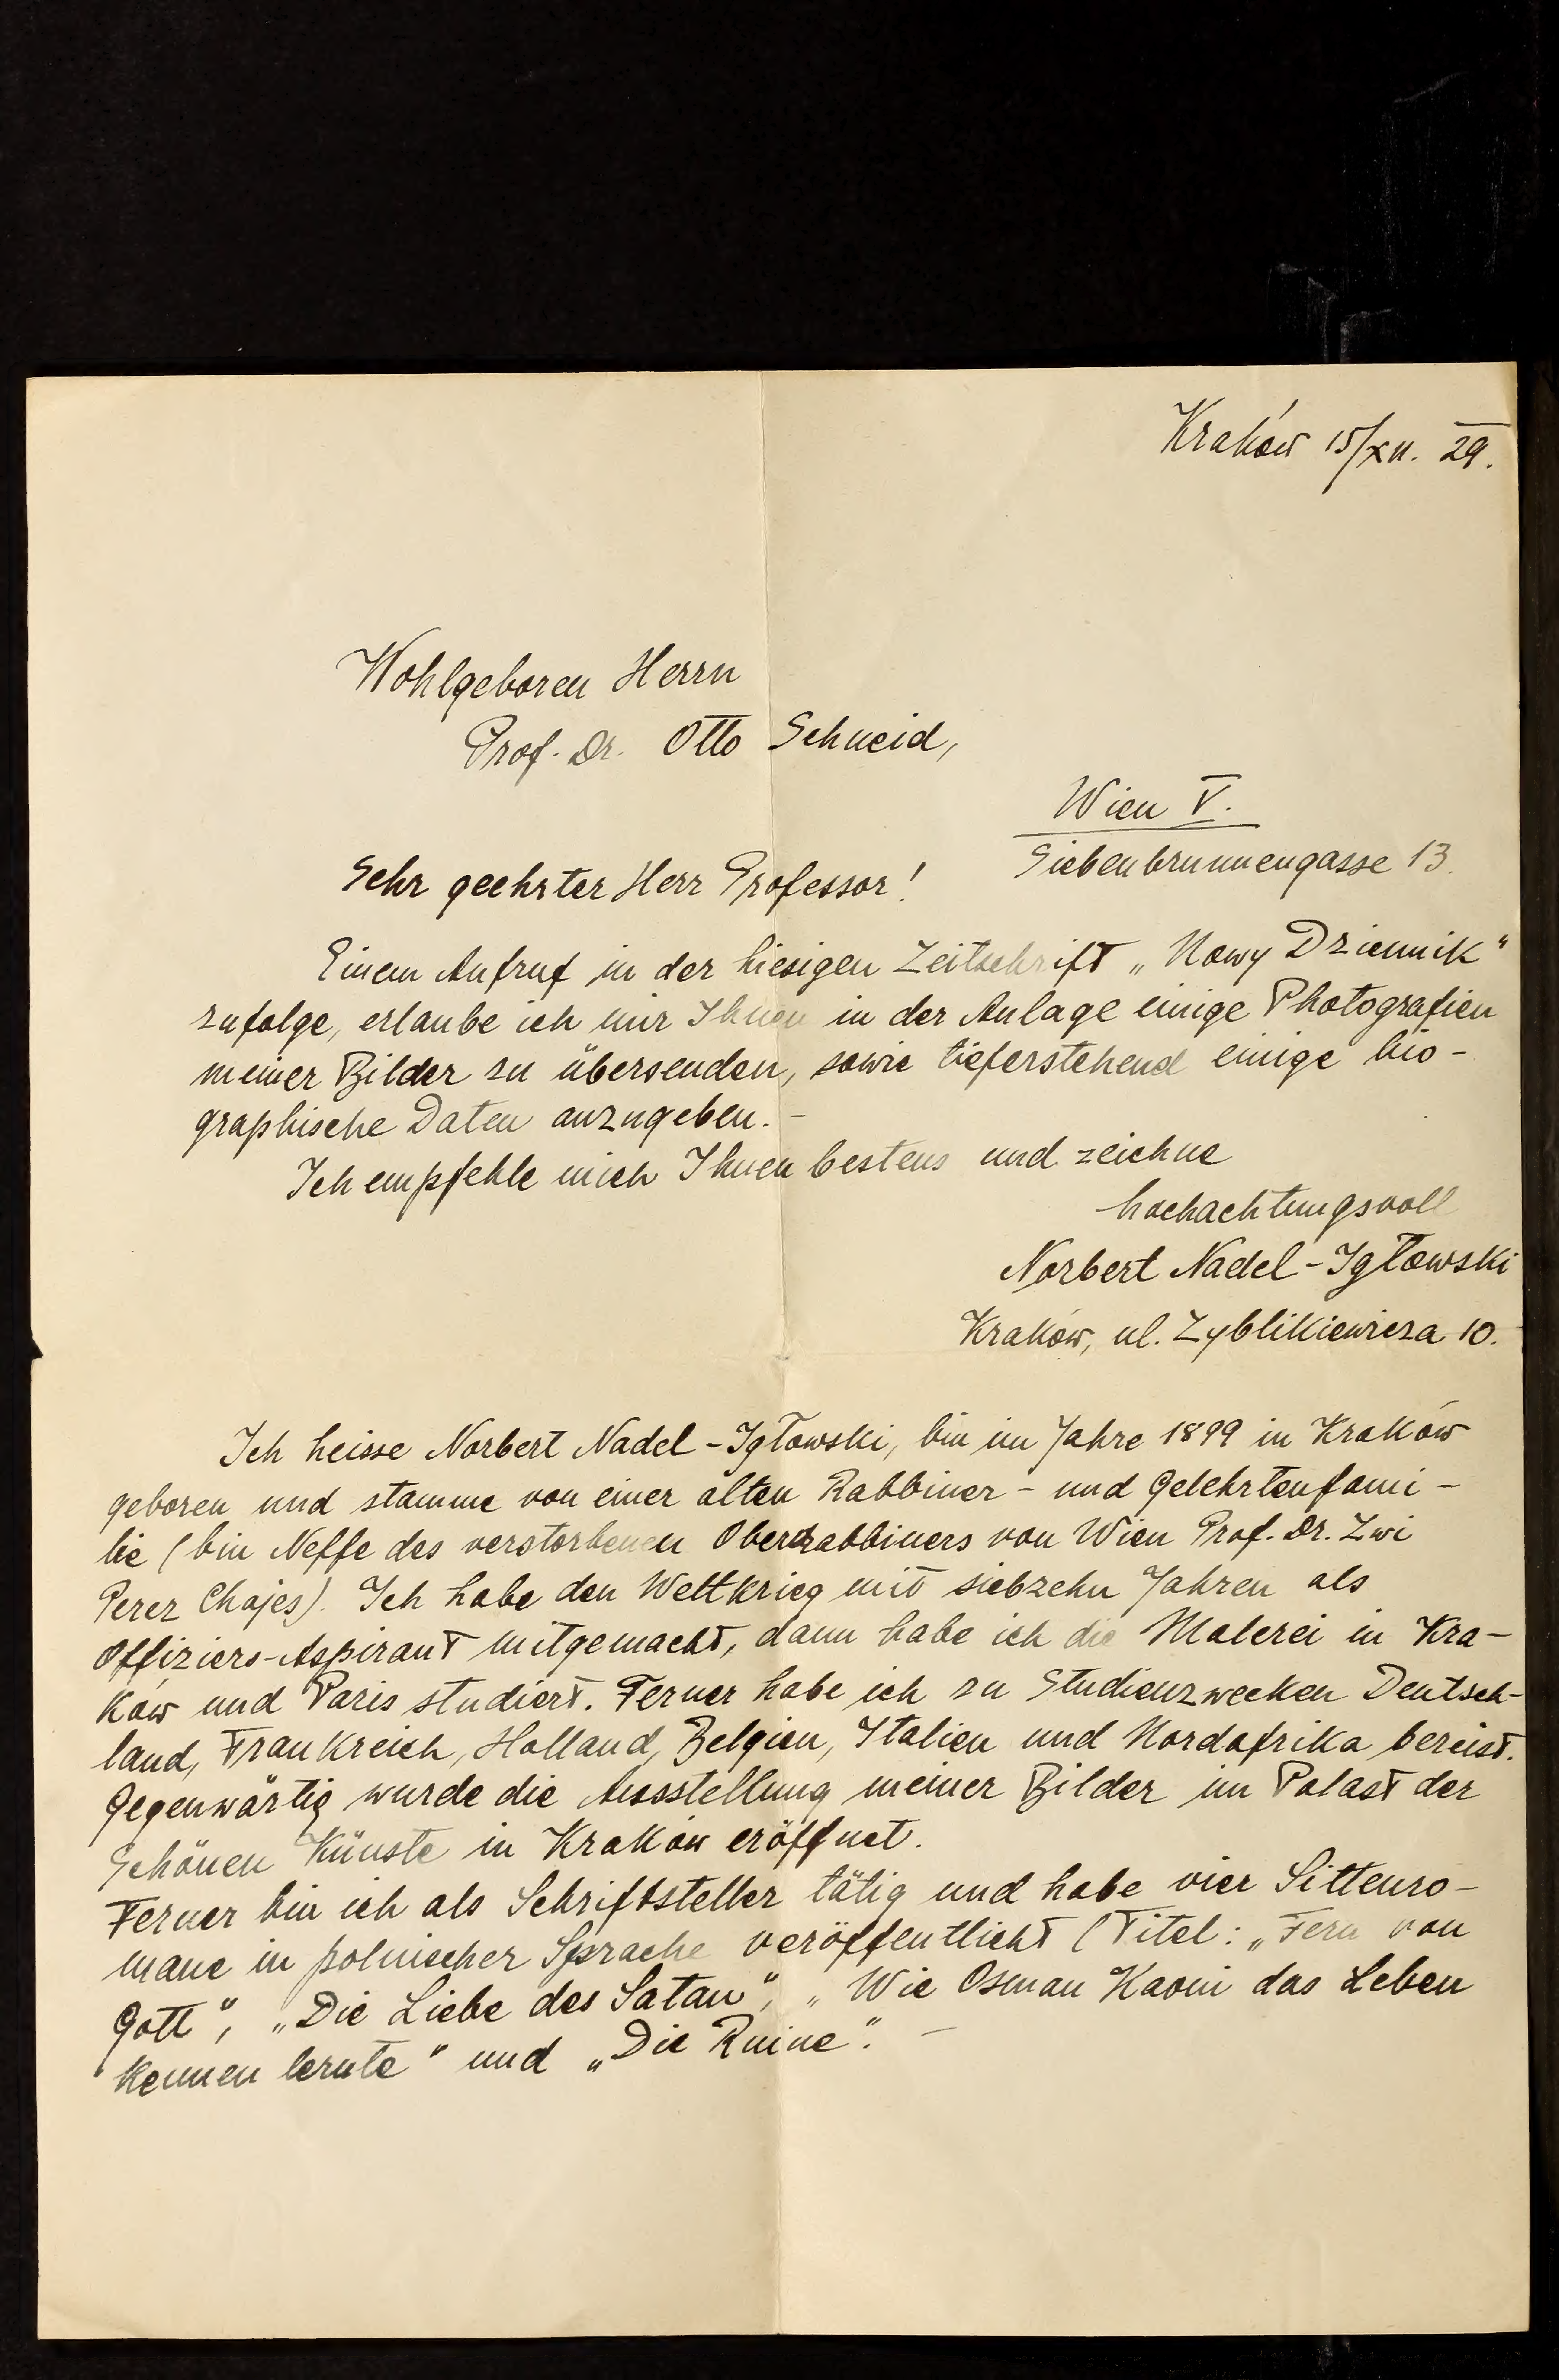 Kraków 15/XII. 29.
Wohlgeboren Herrn
Prof. Dr. Otto Schneid,
Wien V.
Siebenbrunnengasse 13.
Sehr geehrter Herr Professor!
Einem Aufruf in der hiesigen Zeitschrift „Nowy Dziennik“
zufolge, erlaube ich mir Ihnen in der Anlage einige Photografien
meiner Bilder zu übersenden, sowie tieferstehend einige bio-
graphische Daten anzugeben. -
Ich empfehle mich Ihnen bestens und zeichne
hochachtungsvoll
Norbert Nadel-Igłowski
Kraków, ul. Zyblikiewicza 10.
Ich heisse Norbert Nadel-Igłowski, bin im Jahre 1899 in Kraków
geboren und stamme von einer alten Rabbiner- und Gelehrtenfami-
lie (bin Neffe des verstorbenen Oberrabbiners von Wien Prof. Dr. Zwi
Perez Chajes). Ich habe den Weltkrieg mit siebzehn Jahren als
Offiziers-Aspirant mitgemacht, dann habe ich die Malerei in Kra-
ków und Paris studiert. Ferner habe ich zu Studienzwecken Deutsch-
land, Frankreich, Holland, Belgien, Italien und Nordafrika bereist.
Gegenwärtig wurde die Ausstellung meiner Bilder im Palast der
Schönen Künste in Kraków eröffnet.
Ferner bin ich als Schriftsteller tätig und habe vier Sittenro-
mane in polnischer Sprache veröffentlicht (Titel: „Fern von
Gott“, „Die Liebe des Satan“, „Wie Osman Kaoui das Leben
kennen lernte“ und „Die Ruine“. -